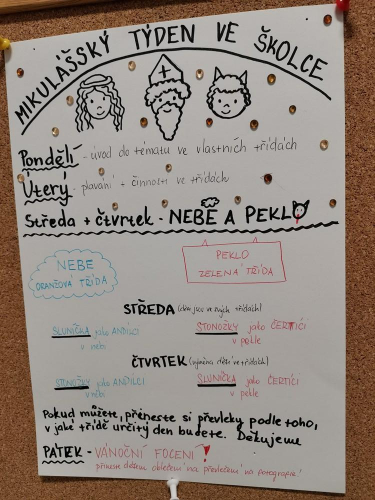 MIKULÁŠSKÝ TÝDEN VE ŠKOLCE
Pondělí - úvod do tématu ve vlastních třídách
Úterý - plavání + činnosti ve třídách
Středa + čtvrtek - NEBE A PEKLO
NEBE
ORANŽOVÁ TŘÍDA
PEKLO
ZELENÁ TŘÍDA
STŘEDA (děti jsou ve svých třídách)
SLUNÍČKA jako ANDÍLCI
v nebi
STONOŽKY jako ČERTÍCI
v pekle
ČTVRTEK (výměna dětí ve třídách)
STONOŽKY jako ANDÍLCI
v nebi
SLUNÍČKA jako ČERTÍCI
v pekle
Pokud můžete, přineste si převleky podle toho,
v jaké třídě určitý den budete. Děkujeme
PÁTEK - VÁNOČNÍ FOCENÍ!
přineste dětem oblečení na převlečení na fotografie!